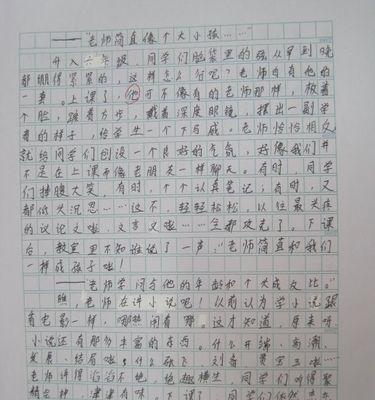 ——"老师简直像个大小孩……"
升入六年级，同学们脑袋里的弦从早到晚
都绷得紧紧的，这样怎么行呢？老师自有他的
一套。上课了，他可不像有的老师那样，板着
个脸，跳着方步，戴着深度眼镜，摆出一副学
者的样子，给学生一个下马威。老师恰恰相反
就给同学们创设一个良好的气氛，好像我们并
不是在上课而像老朋友一样聊天。有时，同学
们捧腹大笑，有时，个个认真笔记；有时，又
都低头沉思……这不，轻轻松松，以往最头疼
的议论文啦，文言文啦……全都攻克了。下课
后，教室里不知谁说了一声："老师简直和我们
一样成孩子啦！
——"老师学问与他的年龄和个大成反比。"
瞧 老师在讲小说呢！以前认为学小说跟
看电影一样，哪热闹看哪。这才知道，原来呀
小说还有那多丰富的东西。什么开端、高潮、
发展、结局啦；什么 刘备 曹军三啦…
老师讲得滔滔不绝，绝趣横生，同学们听得聚
精会神，津津有味。下课了，同学们依然